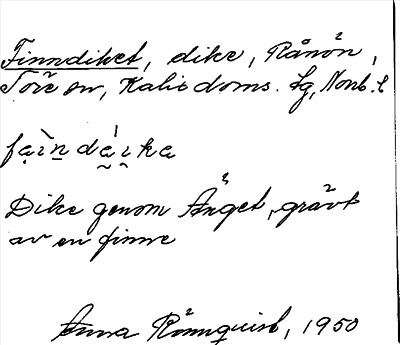 Finndiket, dike, Rånön,
Töre sn, Kalix doms. lg, Nonb. l
Dike genom Änget, grävt
av en finne
Anna Rönnquist, 1950